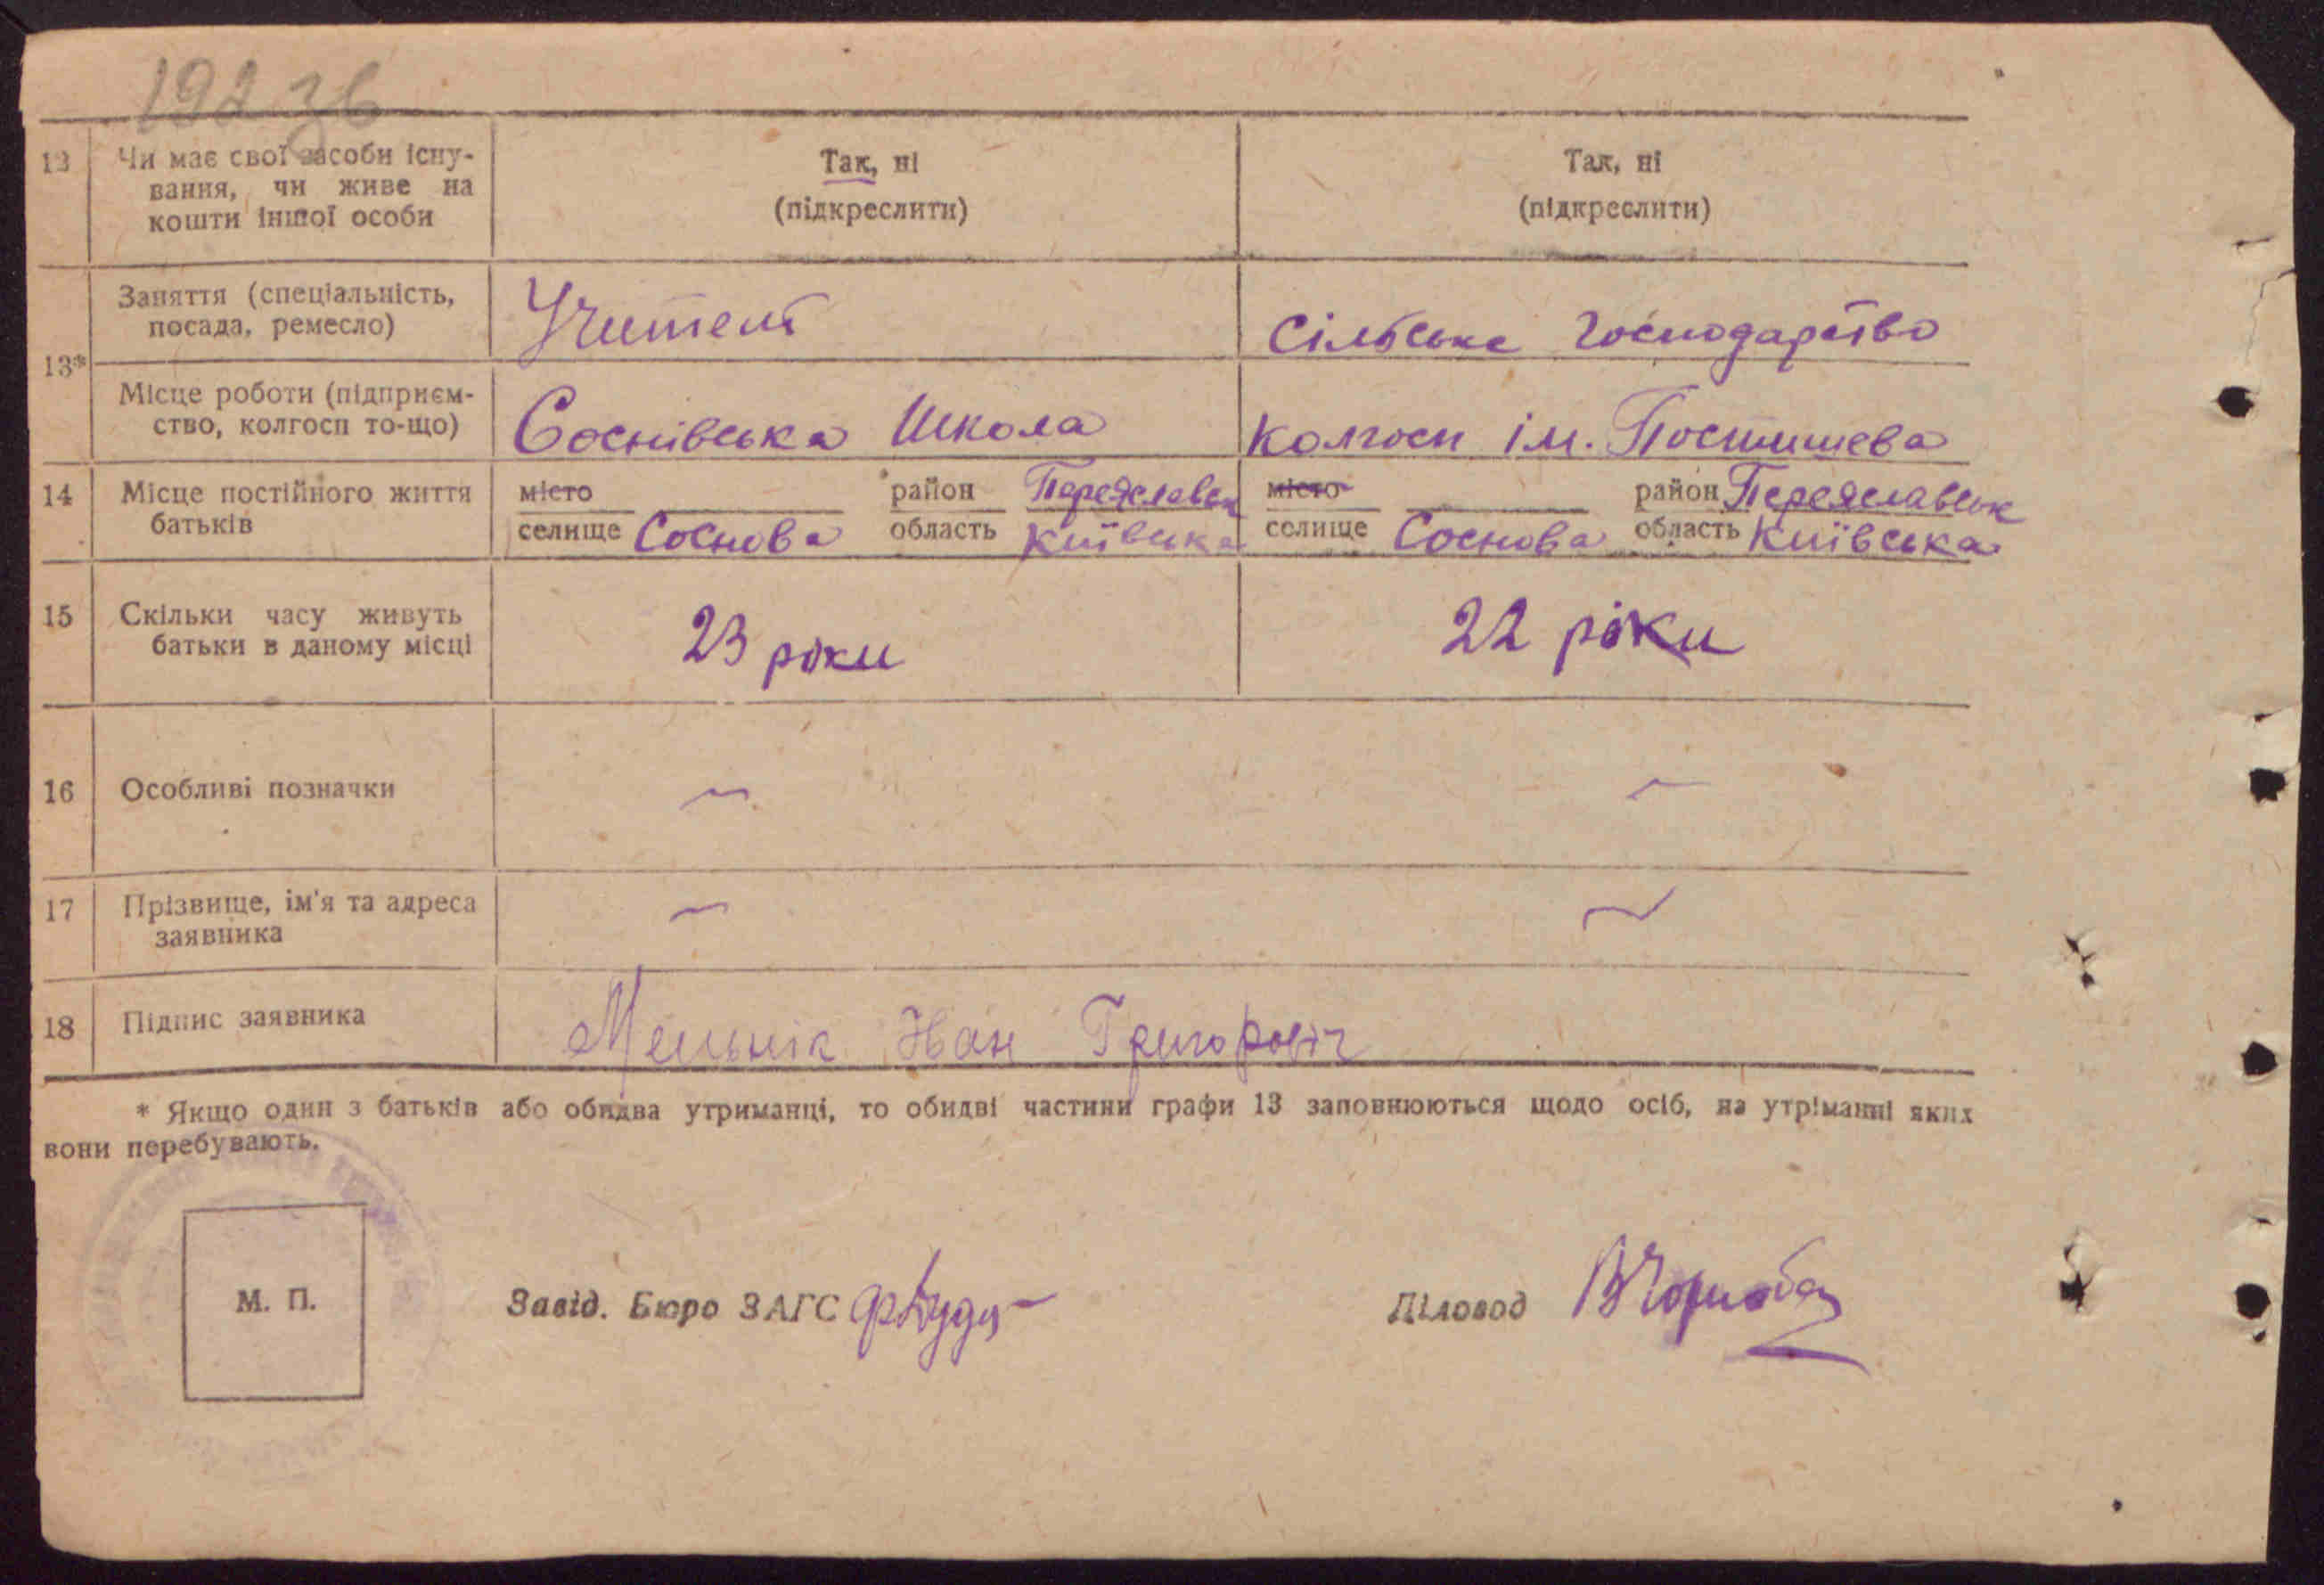 192 зв
12 Чи має свої засоби існу- Так, ні Так, ні
вання, чи живе на (підкреслити) (підкреслити)
кошти іншої особи
Заняття (спеціальність, Учитель Сільське господарство
посада, ремесло)
13*
Місце роботи (підприєм- Соснівська Школа колгосп ім. Постишева
ство, колгосп то-що)
14 Місце постійного життя місто район Переяславськ місто район Переяславськ
батьків селище Соснова область Київська селище Соснова область Київська
15 Скільки часу живуть 23 роки 22 роки
батьки в даному місці
16 Особливі позначки
17 Прізвище, ім'я та адреса
заявника
18 Підпис заявника Мельнік Іван Григоровіч
* Якщо один з батьків або обидва утриманці, то обидві частини графи 13 заповнюються щодо осіб, на утріманні яких
вони перебувають.
М. П. Завід. Бюро ЗАГС Діловод